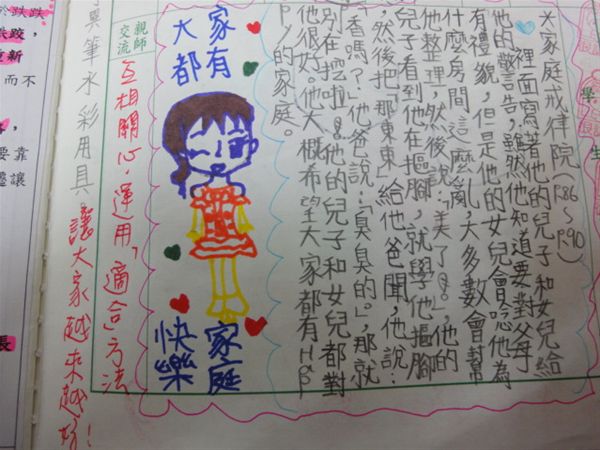 學生
大家庭戒律院(P.86～P.90)
裡面寫著他的兒子和女兒給
他的警告，雖然他知道要對父母
有禮貌，但是他的女兒會唸他為
什麼房間這麼亂，大多數會幫
他整理，然後說：「美了。」他的
兒子看到他在摳腳，就學他摳腳
，然後把「那東東」給他爸聞，他說：
「香嗎？」他爸說：「臭臭的。」，那就
別在挖啦！他的兒子和女兒都對
他很好。他大概希望大家都有Hap
py的家庭。
大家
都有
家庭
快樂
親師交流
互相關心，運用「適合」方法
讓大家越來越好！
筆水彩用具
跌跤，
重新
而不
要靠
長